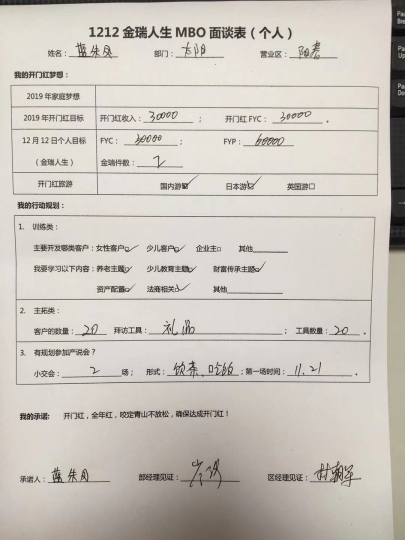 1212 金瑞人生 MBO 面谈表（个人）
姓名： 蓝朱凤 部门： 太阳 营业区：
我的开门红梦想：
2019 年家庭梦想
2019 年开门红目标 开门红收入：30000 ； 开门红 FYC： 30000 。
12 月 12 日个人目标 FYC： 30000 ； FYP： 60000
（金瑞人生） 金瑞件数： 2
开门红旅游 国内游☑ 日本游☑ 英国游□
我的行动规划：
1. 训练类：
主要开发哪类客户：女性客户☑ 少儿客户☑ 企业主□ 其他
我要学习以下内容：养老主题☑ 少儿教育主题☑ 财富传承主题☑
资产配置☑ 法商相关☑ 其他
2. 主拓类：
客户的数量：20 拜访工具： 礼品 ；工具数量：20 。
3. 有规划参加产说会？
小交会： 2 场； 形式： 饮茶、吃饭 ；第一场时间： 11.21 。
我的承诺： 开门红，全年红，咬定青山不放松，确保达成开门红！
承诺人： 蓝朱凤 部经理见证： 区经理见证：